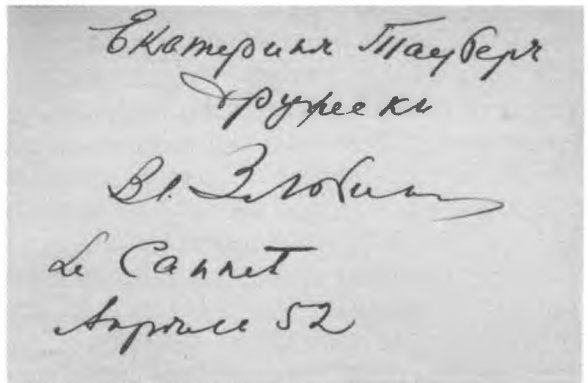 Екатеринѣ Тауберъ
дружески
Вл. Злобин
Le Cannet
Апрѣль 52